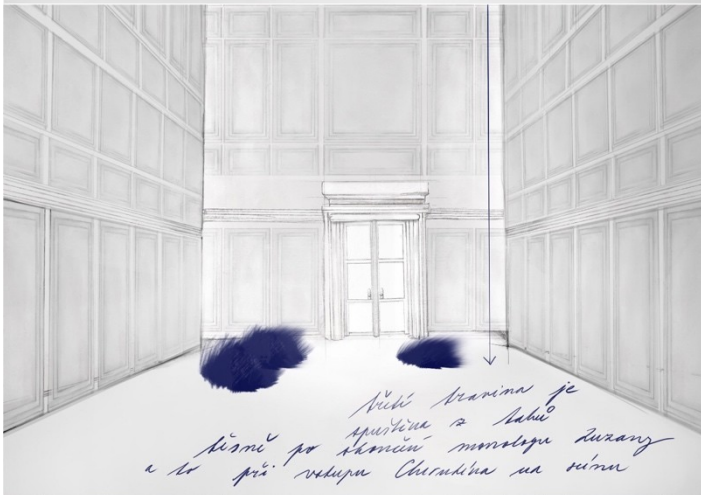 třetí travina je
spuštěna z tahů
těsně po skončení monologu Zuzany
a to při vstupu Cherubína na scénu